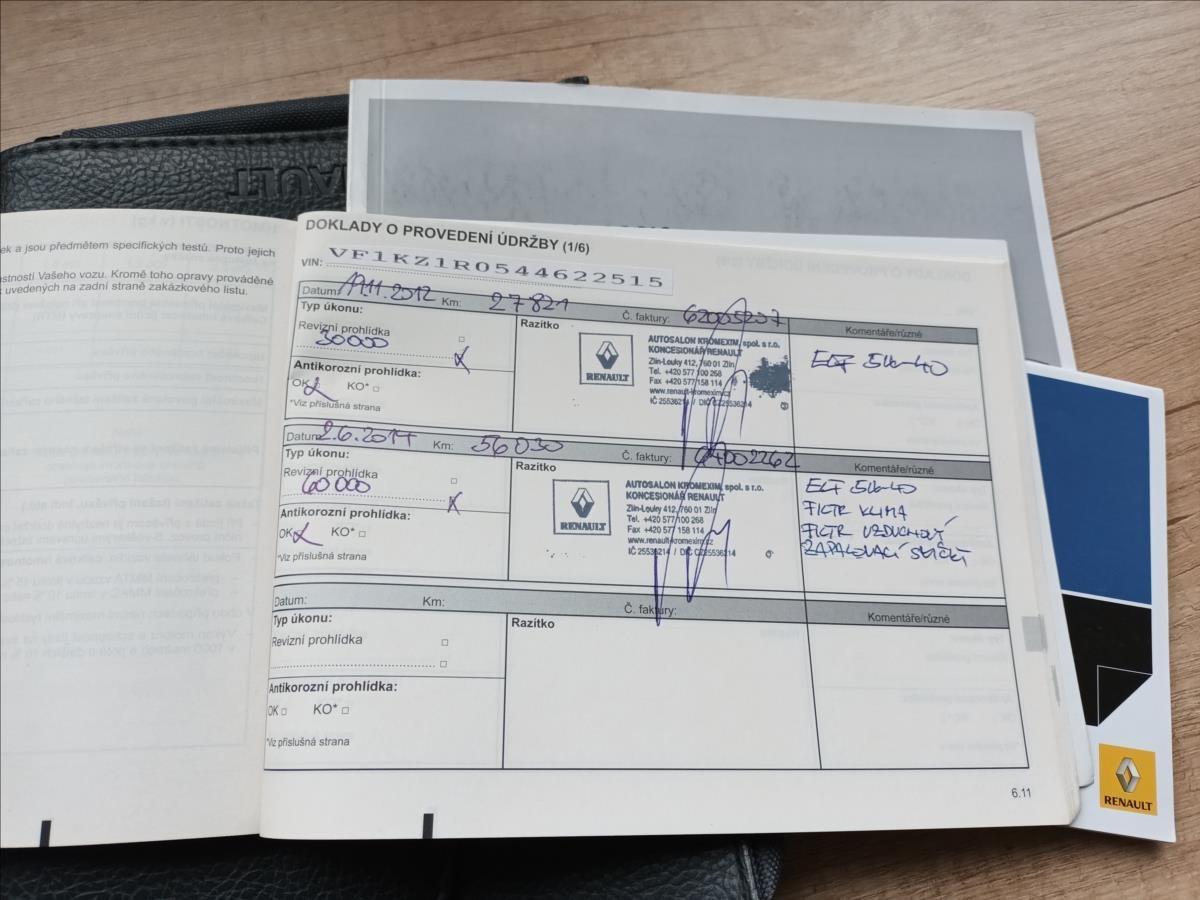 ek a jsou předmětem specifických testů. Proto jejich
stností Vašeho vozu. Kromě toho opravy prováděné
uvedených na zadní straně zakázkového listu.
DOKLADY O PROVEDENÍ ÚDRŽBY (1/6)
VIN: VF1KZ1R0544622515
Datum: 19.11.2012 Km: 27821 Č. faktury: 62005207
Typ úkonu:
Revizní prohlídka
30000
Antikorozní prohlídka:
OK KO*
*Viz příslušná strana
Razítko
RENAULT
AUTOSALON KROMEXIM, spol. s r.o.
KONCESIONÁŘ RENAULT
Zlín-Louky 412, 760 01 Zlín
Tel. +420 577 100 268
Fax +420 577 158 114
www.renault-kromexim.cz
IČ 25536214 / DIČ CZ25536214
Komentáře/různé
ELF 5W-40
Datum: 2.6.2014 Km: 56030 Č. faktury: 64002262
Typ úkonu:
Revizní prohlídka
60000
Antikorozní prohlídka:
OK KO*
*Viz příslušná strana
Razítko
RENAULT
AUTOSALON KROMEXIM, spol. s r.o.
KONCESIONÁŘ RENAULT
Zlín-Louky 412, 760 01 Zlín
Tel. +420 577 100 268
Fax +420 577 158 114
www.renault-kromexim.cz
IČ 25536214 / DIČ CZ25536214
Komentáře/různé
ELF 5W-40
FILTR KLIMA
FILTR VZDUCHOVÝ
ZAPALOVACÍ SVÍČKY
Datum: Km: Č. faktury:
Typ úkonu:
Revizní prohlídka
Antikorozní prohlídka:
OK KO*
*Viz příslušná strana
Razítko
Komentáře/různé
6.11
RENAULT